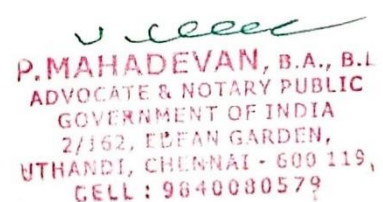 P. MAHADEVAN, B.A., B.L
ADVOCATE & NOTARY PUBLIC
GOVERNMENT OF INDIA
2/162, EDEAN GARDEN,
UTHANDI, CHENNAI - 600 119,
CELL : 9840080579